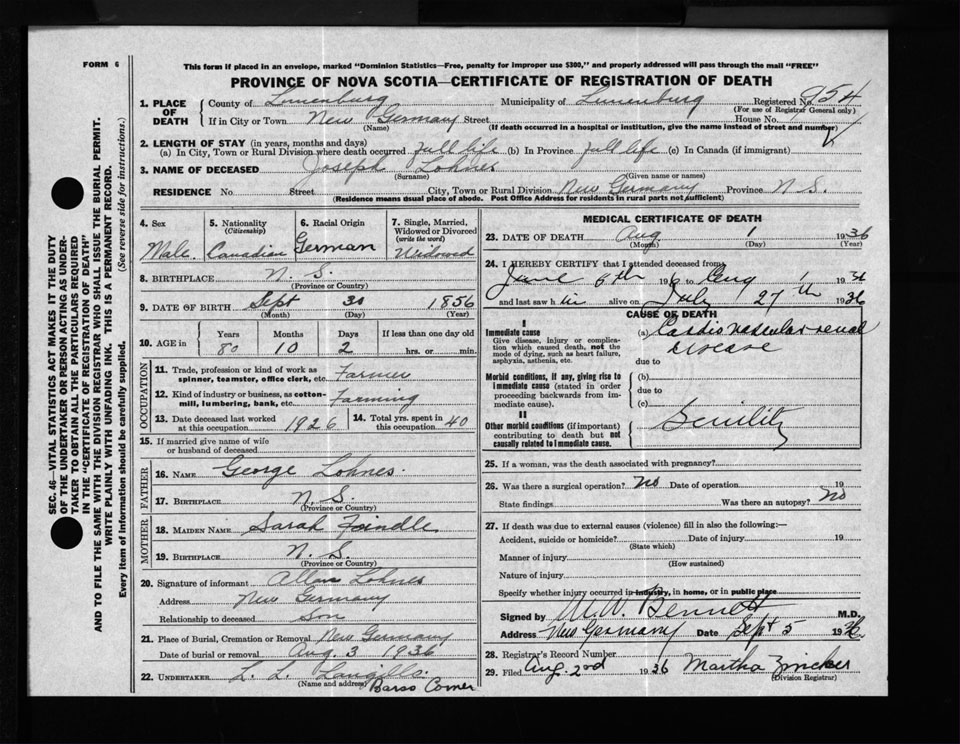 FORM 6
This form if placed in an envelope, marked "Dominion Statistics—Free, penalty for improper use $300," and properly addressed will pass through the mail "FREE"
PROVINCE OF NOVA SCOTIA—CERTIFICATE OF REGISTRATION OF DEATH
SEC. 46—VITAL STATISTICS ACT MAKES IT THE DUTY
OF THE UNDERTAKER OR PERSON ACTING AS UNDER-
TAKER TO OBTAIN ALL THE PARTICULARS REQUIRED
IN THE "CERTIFICATE OF REGISTRATION OF DEATH"
AND TO FILE THE SAME WITH THE DIVISION REGISTRAR WHO SHALL ISSUE THE BURIAL PERMIT.
WRITE PLAINLY WITH UNFADING INK. THIS IS A PERMANENT RECORD.
Every item of information should be carefully supplied. (See reverse side for instructions.)
1. PLACE OF DEATH County of Lunenburg Municipality of Lunenburg Registered No. 954
(For use of Registrar General only)
If in City or Town New Germany Street House No.
(Name) (If death occurred in a hospital or institution, give the name instead of street and number)
2. LENGTH OF STAY (in years, months and days)
(a) In City, Town or Rural Division where death occurred full life (b) In Province full life (c) In Canada (if immigrant)
3. NAME OF DECEASED Joseph Lohnes
(Surname) (Given name or names)
RESIDENCE No Street City, Town or Rural Division New Germany Province N.S.
(Residence means usual place of abode. Post Office Address for residents in rural parts not sufficient)
4. Sex Male.
5. Nationality (Citizenship) Canadian
6. Racial Origin German
7. Single, Married, Widowed or Divorced (write the word) Widowed
8. BIRTHPLACE N. S.
(Province or Country)
9. DATE OF BIRTH Sept 30 1856
(Month) (Day) (Year)
10. AGE in Years Months Days If less than one day old
80 10 2 hrs. or min.
OCCUPATION
11. Trade, profession or kind of work as spinner, teamster, office clerk, etc. Farmer
12. Kind of industry or business, as cotton-mill, lumbering, bank, etc. Farming
13. Date deceased last worked at this occupation 1926 14. Total yrs. spent in this occupation 40
15. If married give name of wife or husband of deceased
FATHER
16. NAME George Lohnes.
17. BIRTHPLACE N. S.
(Province or Country)
MOTHER
18. MAIDEN NAME Sarah Faindle
19. BIRTHPLACE N. S.
(Province or Country)
20. Signature of informant Allan Lohnes
Address New Germany
Relationship to deceased Son
21. Place of Burial, Cremation or Removal New Germany
Date of burial or removal Aug. 3 1936
22. UNDERTAKER L. L. Langille
(Name and address) Barss Corner
MEDICAL CERTIFICATE OF DEATH
23. DATE OF DEATH Aug 1 1936
(Month) (Day) (Year)
24. I HEREBY CERTIFY that I attended deceased from
June 6th to Aug 1 1936
and last saw him alive on July 27th 1936
CAUSE OF DEATH
I
Immediate cause
Give disease, injury or complication which caused death, not the mode of dying, such as heart failure, asphyxia, asthenia, etc.
(a) Cardio vascular-renal
Disease
due to
Morbid conditions, if any, giving rise to immediate cause (stated in order proceeding backwards from immediate cause).
(b)
due to
(c)
II
Other morbid conditions (if important) contributing to death but not causally related to immediate cause.
Senility
25. If a woman, was the death associated with pregnancy?
26. Was there a surgical operation? No Date of operation 19
State findings Was there an autopsy? No
27. If death was due to external causes (violence) fill in also the following:—
Accident, suicide or homicide? Date of injury 19
(State which)
Manner of injury
(How sustained)
Nature of injury
Specify whether injury occurred in industry, in home, or in public place
Signed by M.W. Bennett M.D.
Address New Germany Date Sept 5 1936
28. Registrar's Record Number
29. Filed Aug. 2nd 1936 Martha Zincker
(Division Registrar)